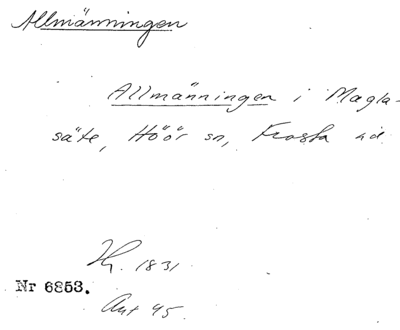 Allmänningen
Allmänningen i Magla-
säte, Höör sn, Frosta hd
Hy. 1831
Nr 6853.
Ant 45